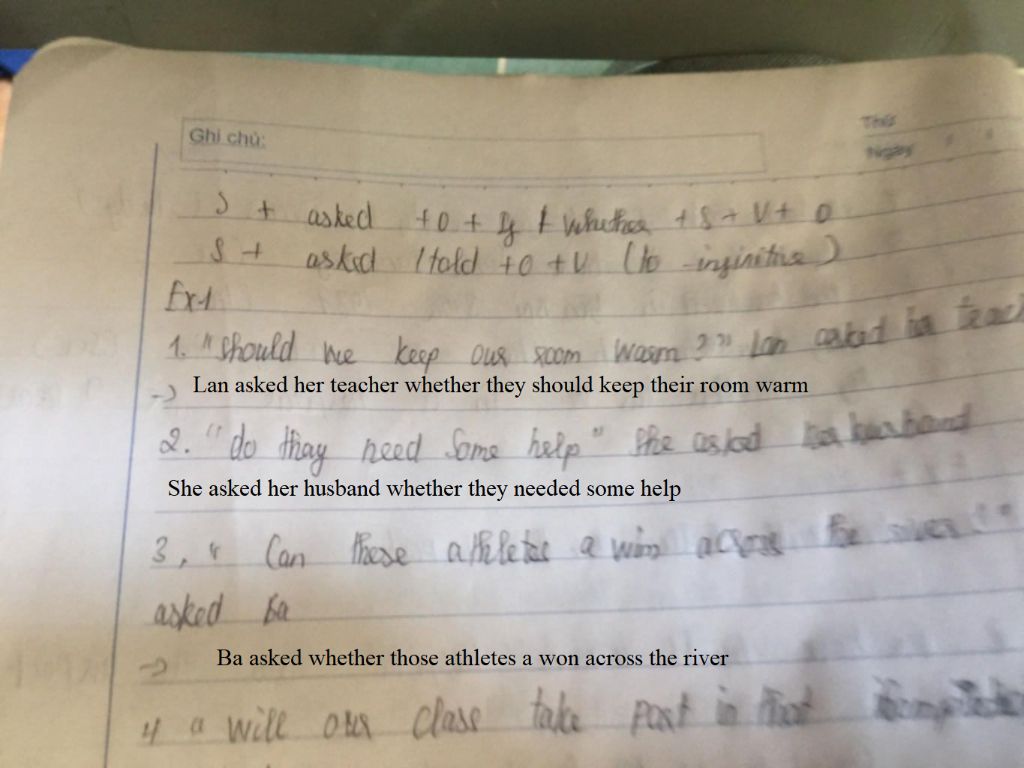 Ghi chú:
Thứ:
Ngày:
S + asked + O + If / whether + S + V + O
S + asked / told + O + V (to - infinitive)
Ex1
1. "Should we keep our room warm?" Lan asked her teach
-> Lan asked her teacher whether they should keep their room warm
2. "do thay need some help" She asked her husband
She asked her husband whether they needed some help
3, " Can these athletes a wim across the river?"
asked Ba
-> Ba asked whether those athletes a won across the river
4 " will our class take part in that